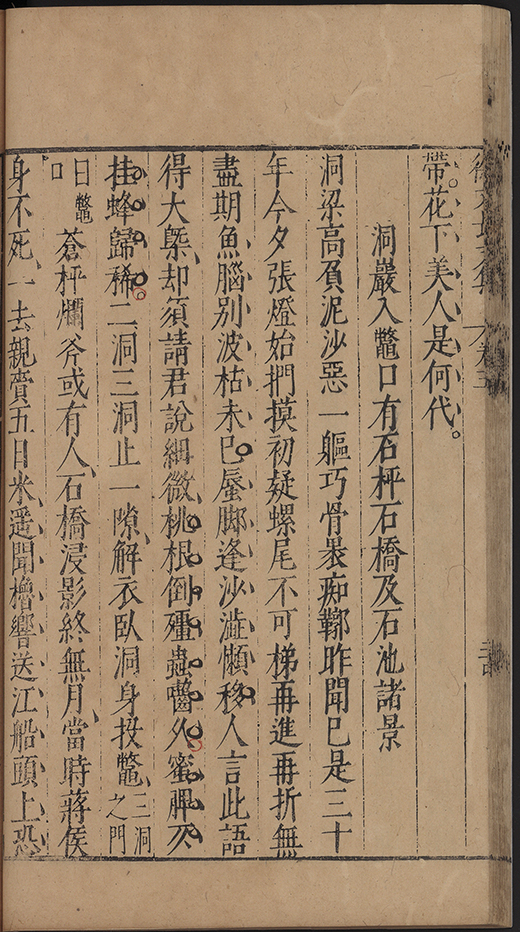 帶花下美人是何代。
洞巖入鼈口有石枰石橋及石池諸景
洞梁高負泥沙惡一軀巧骨裹痴鞹昨聞已是三十
年今夕張燈始捫摸初疑螺尾不可梯再進再折無
盡期魚腦別波枯未已蜃脚逢沙澁懶移人言此語
得大槩却須請君說細微桃根倒殭蟲嚙久蜜脾不
挂蜂歸稀二洞三洞止一隙解衣臥洞身投鼈三洞之門
曰鼈口蒼枰爛斧或有人石橋浸影終無月當時蔣侯
身不死一去親賫五日米遥聞櫓響送江船頭上恐